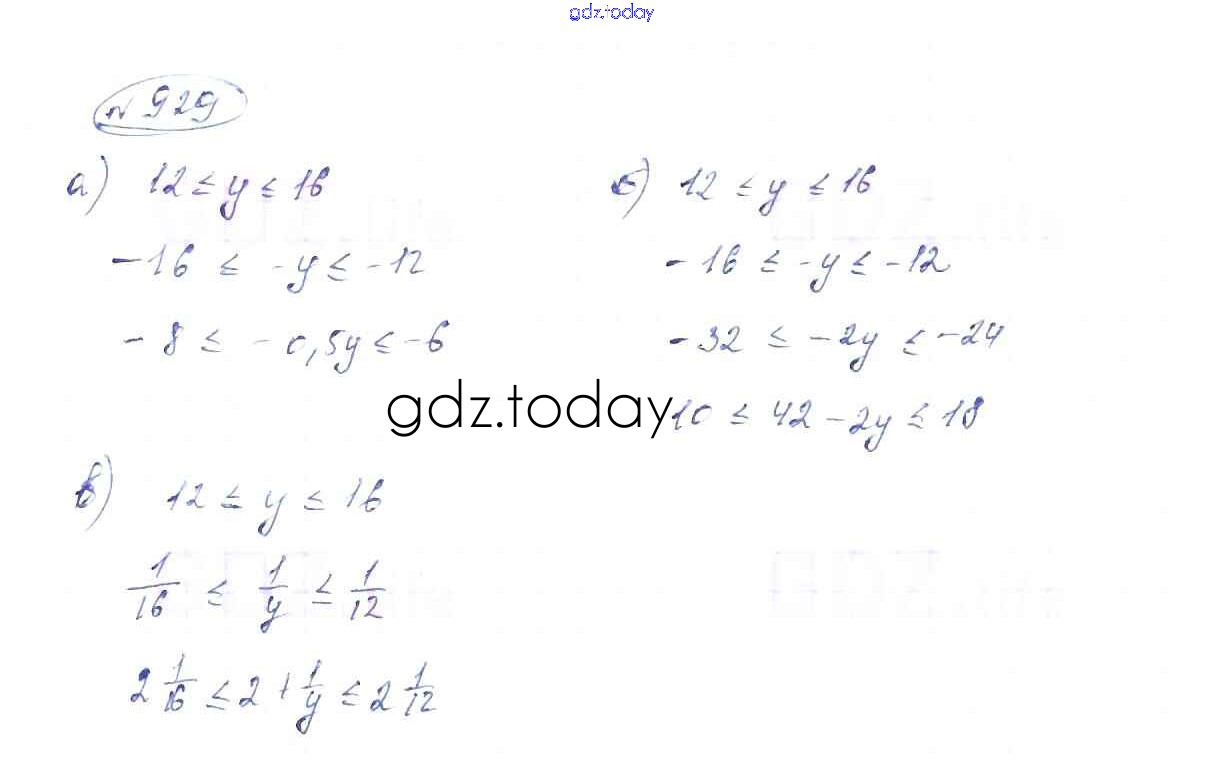 gdz.today
№ 929
а) 12 ≤ y ≤ 16
-16 ≤ -y ≤ -12
-8 ≤ -0,5y ≤ -6
б) 12 ≤ y ≤ 16
-16 ≤ -y ≤ -12
-32 ≤ -2y ≤ -24
10 ≤ 42 - 2y ≤ 18
gdz.today
в) 12 ≤ y ≤ 16
1/16 ≤ 1/y ≤ 1/12
2 1/16 ≤ 2 + 1/y ≤ 2 1/12